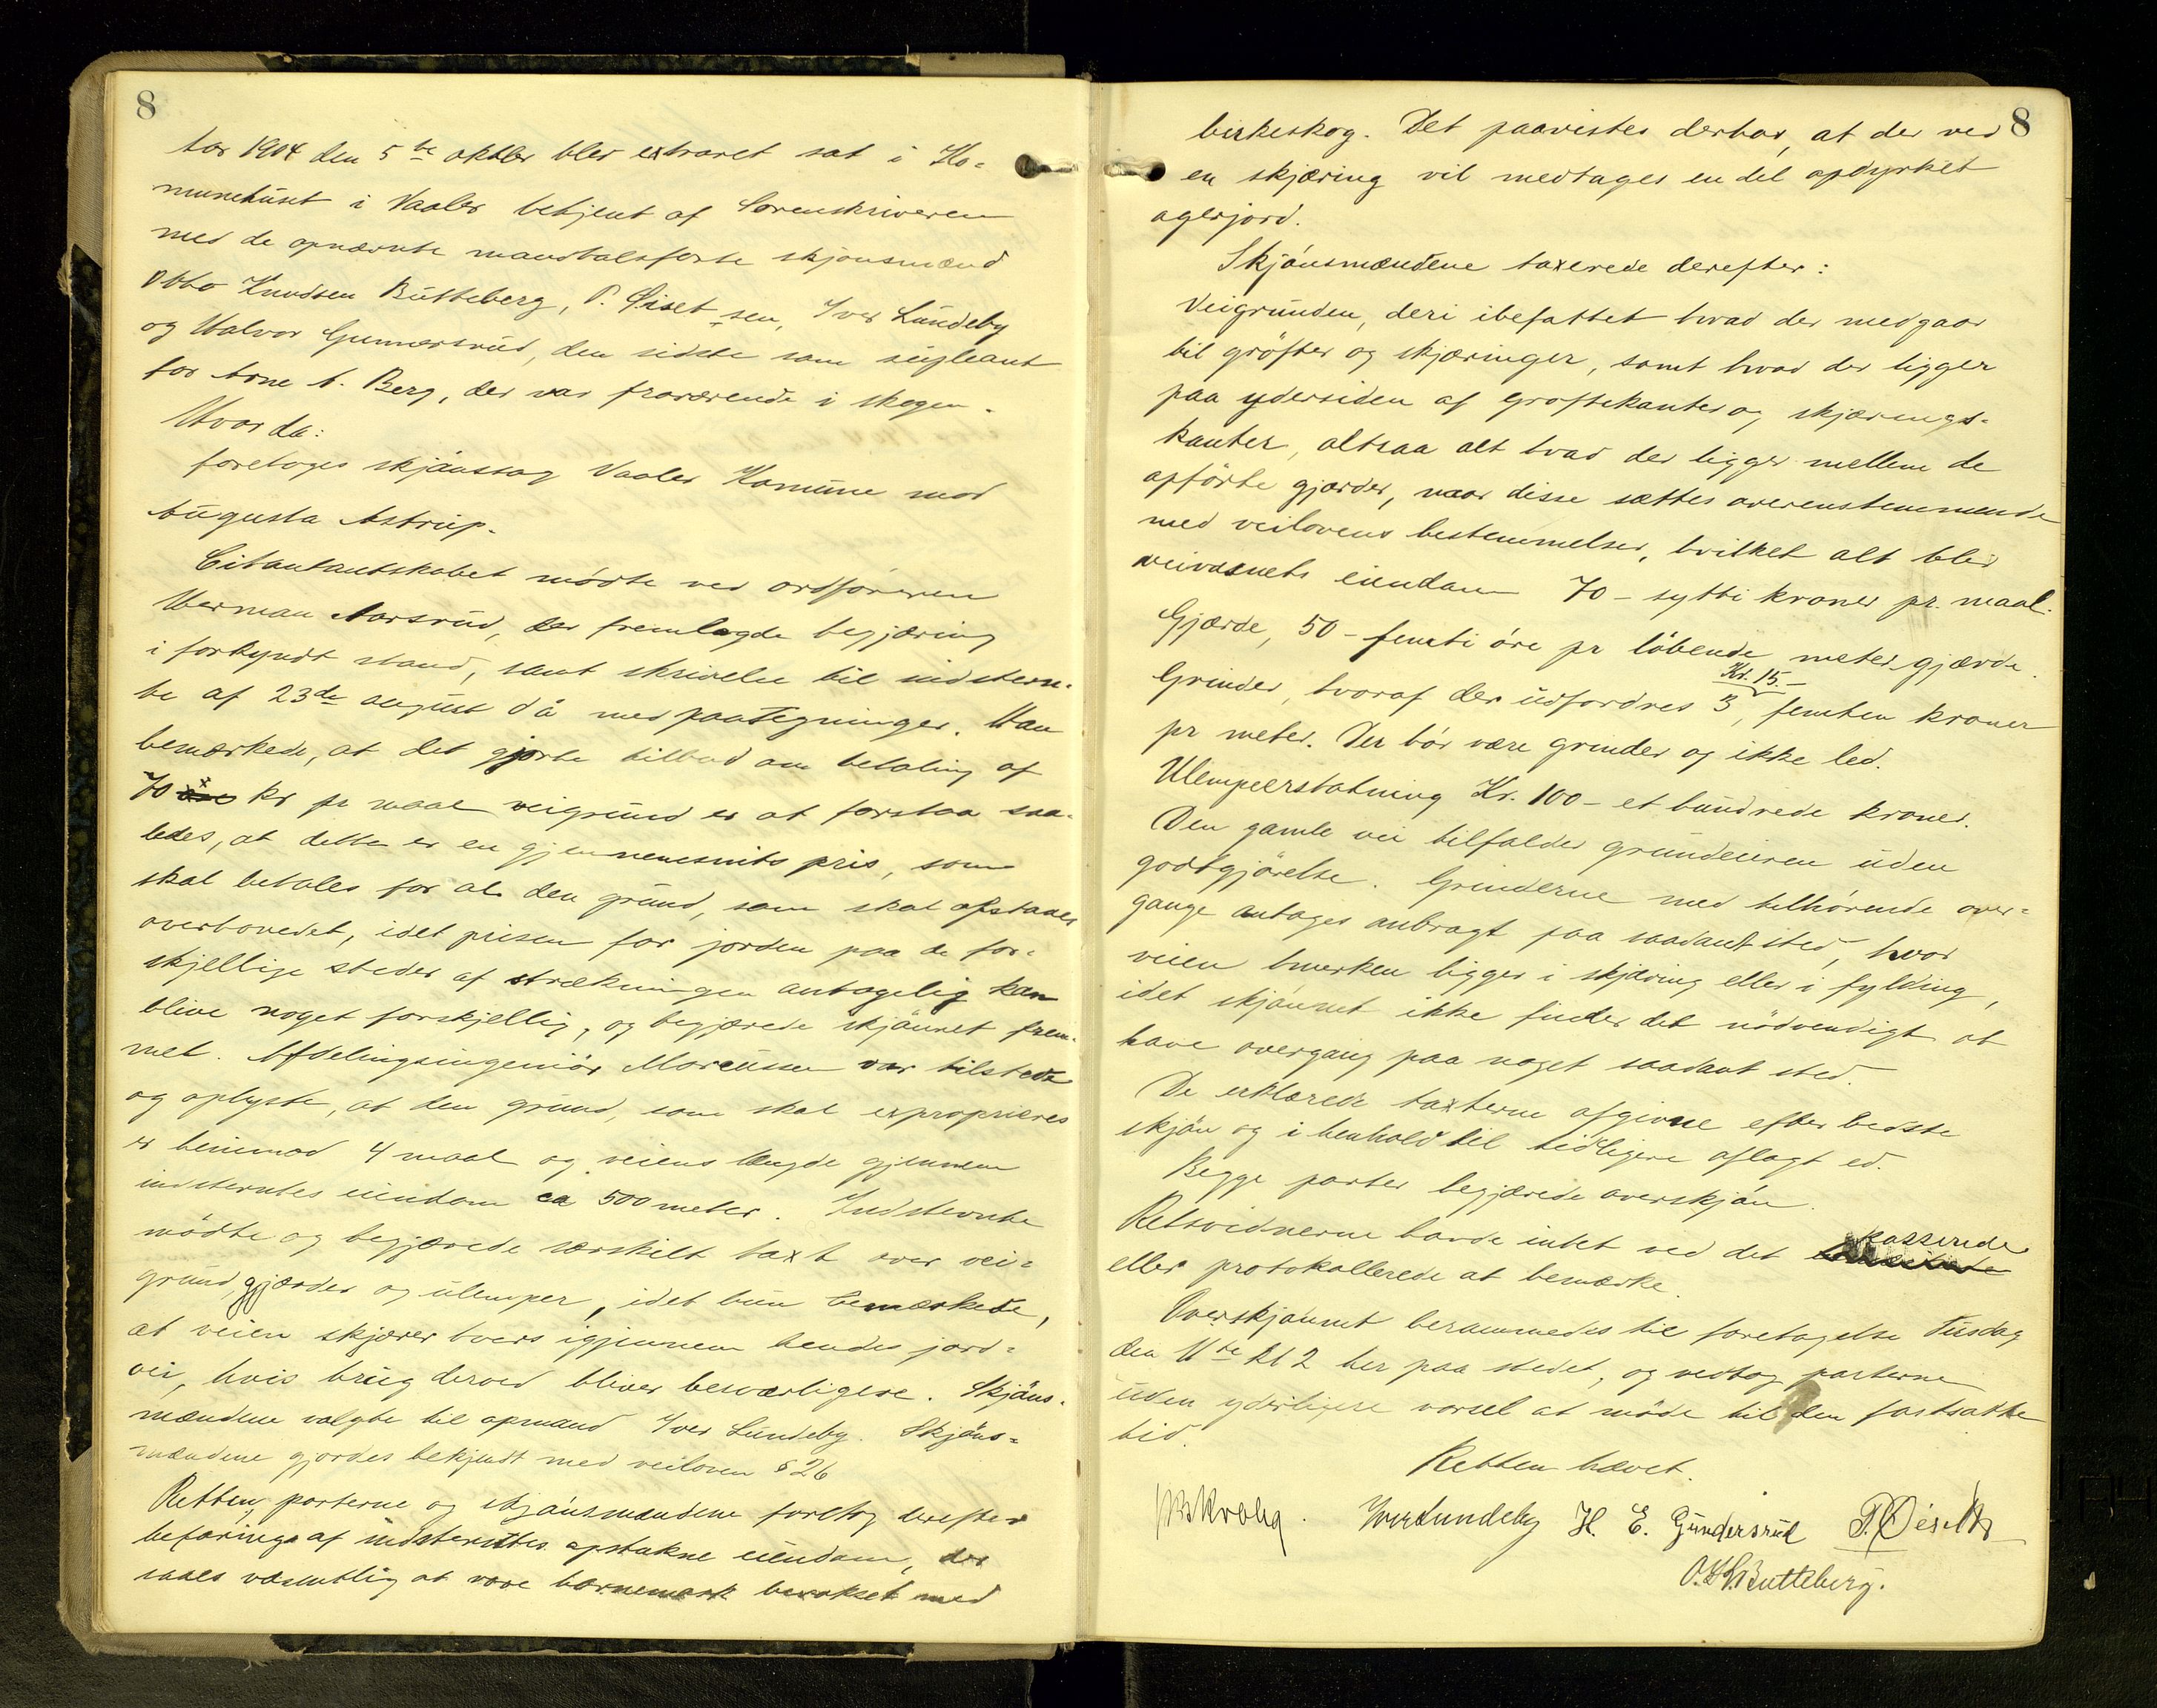 8
Aar 1904 den 5te oktbr blev extraret sat i Ko-
munehuset i Vaaler betjent af Sorenskriveren
med de opnævnte mandtalsførte skjønsmænd
Otto Knudsen Butteberg, P. Øiset sen, Iver Lundeby
og Halvor Gunnersrud, den sidste som supleant
for Arne A. Berg, der var fraværende i skogen.
Hvor da:
foretoges skjønssag Vaaler Komune mod
Augusta Astrup.
Citantantskabet mødte ved ordføreren
Herman Aarsrud, der fremlagde begjæring
i forkyndt stand, samt skrivelse til indstevn-
te af 23de august d å med paategninger. Han
bemærkede, at det gjorte tilbud om betaling af
70 kr pr maal veigrund er at forstaa saa-
ledes, at dette er en gjennemsnits pris, som
skal betales for al den grund, som skal afstaaes
overhovedet, idet prisen for jorden paa de for-
skjellige steder af strækningen antagelig kan
blive noget forskjellig, og begjærede skjønnet frem-
met. Afdelingsingeniør Morcussen var tilstede
og oplyste, at den grund, som skal exproprieres
er henimod 4 maal og veiens længde gjennem
indstevntes eiendom ca 500 meter. Indstevnte
mødte og begjærede særskilt taxt over vei-
grund, gjærder og ulemper, idet hun bemærkede,
at veien skjærer tvers igjennem hendes jord-
vei, hvis brug derved bliver besværligere. Skjøns-
mændene valgte til opmand Iver Lundeby. Skjøns-
mændene gjordes bekjendt med veiloven § 26
Retten, parterne og skjønsmændene foretog derefter
befaring af indstevntes opstukne eiendom, der
saaes væsentlig at være havnemark bevokset med
8
birkeskog. Det paavistes derhos, at der ved
en skjæring vil medtages en del opdyrket
agerjord.
Skjønsmændene taxerede derefter:
Veigrunden, deri ibefattet hvad der medgaar
til grøfter og skjæringer, samt hvad der ligger
paa ydersiden af grøftekanter og skjærings-
kanter, altsaa alt hvad der ligger mellem de
opførte gjærder, naar disse sættes overensstemmende
med veilovens bestemmelser, hvilket alt blir
veivæsnets eiendom 70 - sytti kroner pr. maal.
Gjærde, 50 - femti øre pr løbende meter gjærde.
Kr. 15.-
Grinder, hvoraf der udfordres 3, femten kroner
pr meter. Der bør være grinder og ikke led.
Ulempeerstatning Kr. 100 - et hundrede kroner.
Den gamle vei tilfalder grundeieren uden
godtgjørelse. Grinderne med tilhørende over-
gange antages anbragt paa saadant sted, hvor
veien hverken ligger i skjæring eller i fylding,
idet skjønnet ikke finder det nødvendigt at
have overgang paa noget saadant sted.
De erklærede taxterne afgivne efter bedste
skjøn og i henhold til tidligere aflagt ed.
Begge parter begjærede overskjøn.
Retsvidnerne havde intet ved det passerede
eller protokollerede at bemærke.
Overskjønnet berammedes til foretagelse Tirsdag
den 11te kl 2 her paa stedet, og vedtog parterne
uden yderligere varsel at møde til den fastsatte
tid.
Retten hævet.
Iver Lundeby H. E. Gundersrud P. Øiset
O. K. Butteberg.